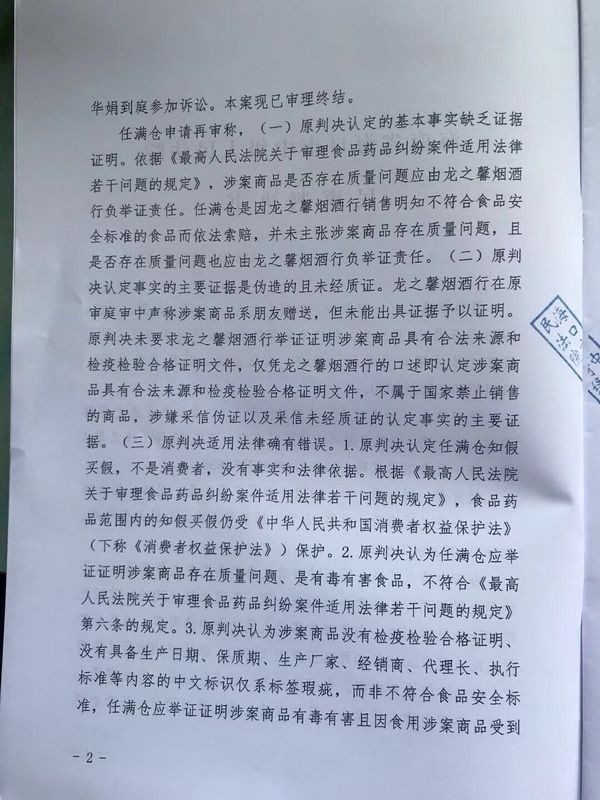 华娟到庭参加诉讼。本案现已审理终结。
任满仓申请再审称，（一）原判决认定的基本事实缺乏证据
证明。依据《最高人民法院关于审理食品药品纠纷案件适用法律
若干问题的规定》，涉案商品是否存在质量问题应由龙之馨烟酒
行负举证责任。任满仓是因龙之馨烟酒行销售明知不符合食品安
全标准的食品而依法索赔，并未主张涉案商品存在质量问题，且
是否存在质量问题也应由龙之馨烟酒行负举证责任。（二）原判
决认定事实的主要证据是伪造的且未经质证。龙之馨烟酒行在原
审庭审中声称涉案商品系朋友赠送，但未能出具证据予以证明。
原判决未要求龙之馨烟酒行举证证明涉案商品具有合法来源和
检疫检验合格证明文件，仅凭龙之馨烟酒行的口述即认定涉案商
品具有合法来源和检疫检验合格证明文件，不属于国家禁止销售
的商品，涉嫌采信伪证以及采信未经质证的认定事实的主要证
据。（三）原判决适用法律确有错误。1.原判决认定任满仓知假
买假，不是消费者，没有事实和法律依据。根据《最高人民法院
关于审理食品药品纠纷案件适用法律若干问题的规定》，食品药
品范围内的知假买假仍受《中华人民共和国消费者权益保护法》
（下称《消费者权益保护法》）保护。2.原判决认为任满仓应举
证证明涉案商品存在质量问题、是有毒有害食品，不符合《最高
人民法院关于审理食品药品纠纷案件适用法律若干问题的规定》
第六条的规定。3.原判决认为涉案商品没有检疫检验合格证明、
没有具备生产日期、保质期、生产厂家、经销商、代理长、执行
标准等内容的中文标识仅系标签瑕疵，而非不符合食品安全标
准，任满仓应举证证明涉案商品有毒有害且因食用涉案商品受到
- 2 -
海口
民法院